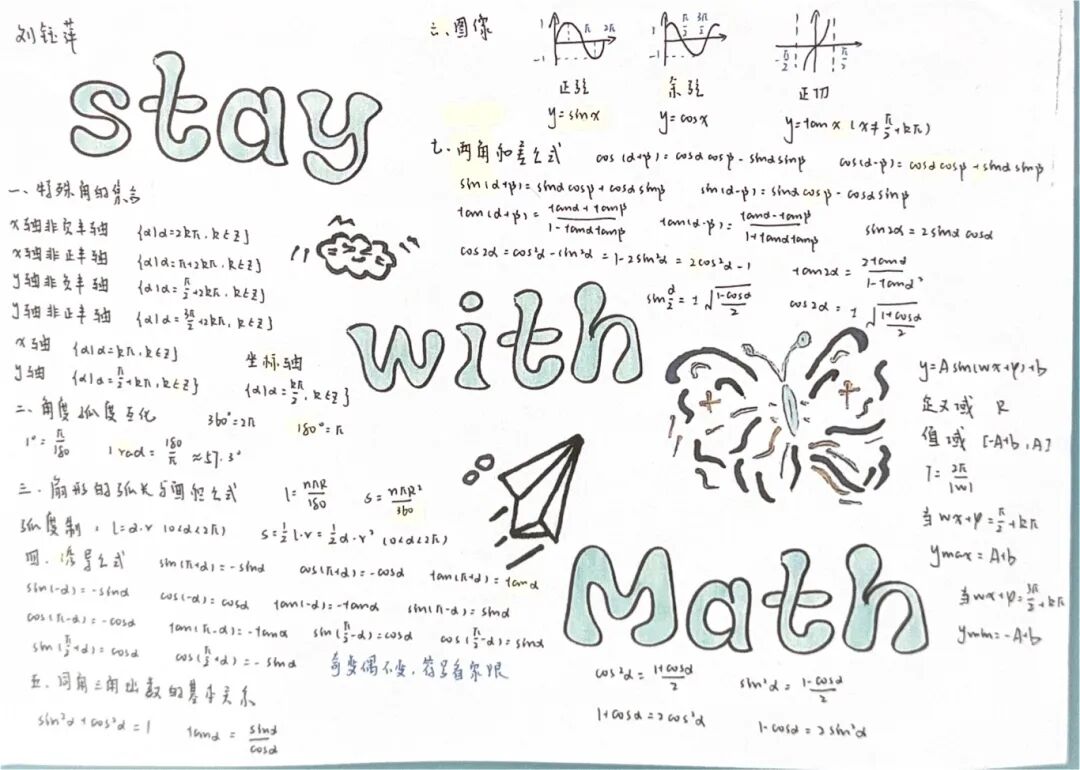 刘钰萍
stay
with
Math
一、特殊角的集合
x轴非负半轴 {α|α=2kπ, k∈Z}
x轴非正半轴 {α|α=π+2kπ, k∈Z}
y轴非负半轴 {α|α=π/2+2kπ, k∈Z}
y轴非正半轴 {α|α=3π/2+2kπ, k∈Z}
x轴 {α|α=kπ, k∈Z} 坐标轴
y轴 {α|α=π/2+kπ, k∈Z} {α|α=kπ/2, k∈Z}
二、角度弧度互化 360°=2π 180°=π
1°=π/180 1 rad=180/π≈57.3°
三、扇形的弧长与面积公式 l=nπR/180 s=nπR²/360
弧度制: l=α·r (0<α<2π) s=1/2 l·r=1/2 α·r² (0<α<2π)
四、诱导公式 sin(π+α)=-sinα cos(π+α)=-cosα tan(π+α)=tanα
sin(-α)=-sinα cos(-α)=cosα tan(-α)=-tanα sin(π-α)=sinα
cos(π-α)=-cosα tan(π-α)=-tanα sin(π/2-α)=cosα cos(π/2-α)=sinα
sin(π/2+α)=cosα cos(π/2+α)=-sinα 奇变偶不变,符号看象限
五、同角三角函数的基本关系
sin²α+cos²α=1 tanα=sinα/cosα
六、图像
1 π 2π -1
1 π/2 3π/2 -1
-π/2 π/2
正弦 余弦 正切
y=sinx y=cosx y=tanx (x≠π/2+kπ)
七、两角和差公式 cos(α+β)=cosαcosβ-sinαsinβ cos(α-β)=cosαcosβ+sinαsinβ
sin(α+β)=sinαcosβ+cosαsinβ sin(α-β)=sinαcosβ-cosαsinβ
tan(α+β)=tanα+tanβ/1-tanαtanβ tan(α-β)=tanα-tanβ/1+tanαtanβ sin2α=2sinαcosα
cos2α=cos²α-sin²α=1-2sin²α=2cos²α-1 tan2α=2tanα/1-tanα²
sin α/2=±√1-cosα/2 cos2α=±√1+cosα/2
y=Asin(wx+φ)+b
定义域 R
值域 [-A+b,A]
T=2π/|w|
当wx+φ=π/2+kπ
ymax=A+b
当wx+φ=3π/2+kπ
ymin=-A+b
cos²α=1+cosα/2 sin²α=1-cosα/2
1+cosα=2cos²α 1-cosα=2sin²α